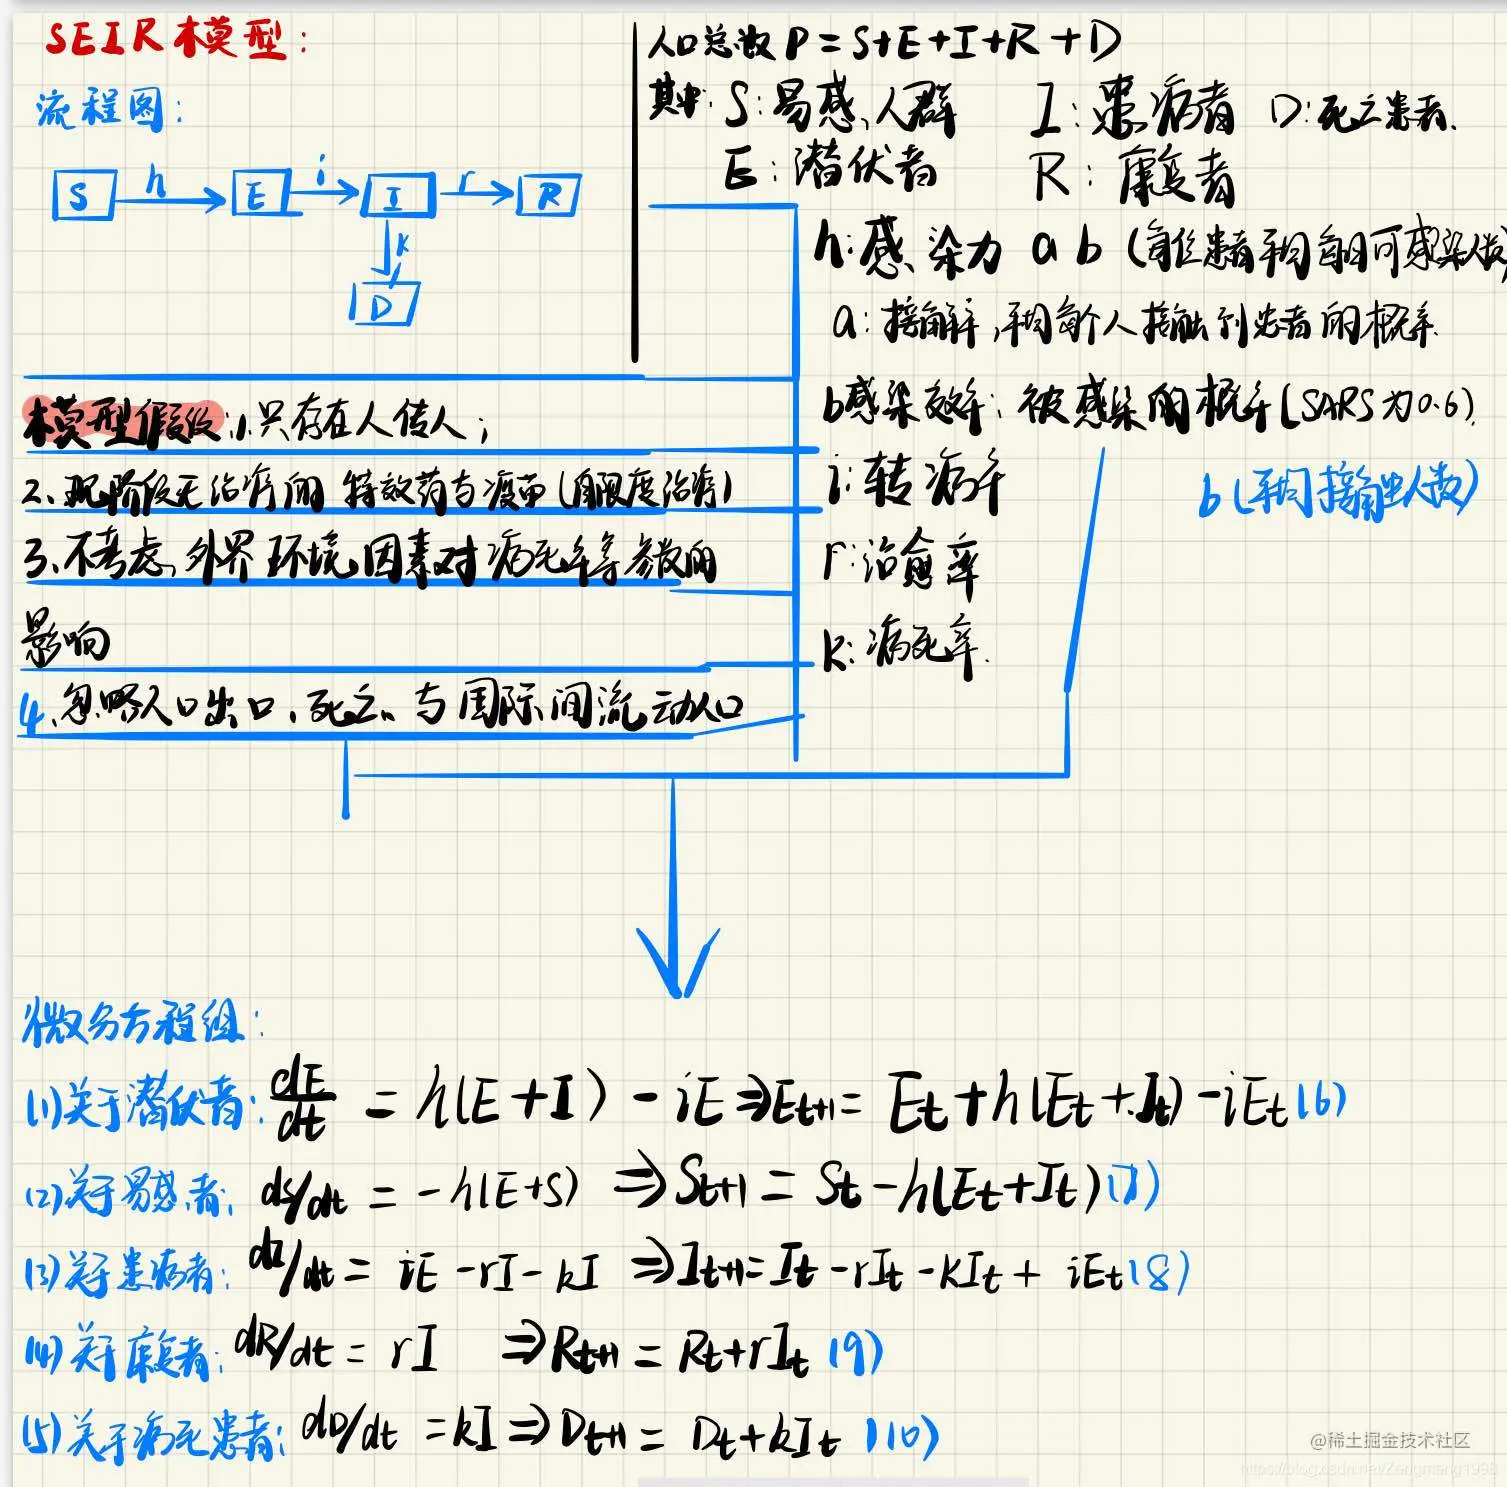 SEIR模型:
流程图:
S h E i I r R
k
D
人口总数 P = S+E+I+R+D
其中: S:易感人群 I:患病者 D:死亡患者.
E:潜伏者 R:康复者
h:感染力 a b (每位患者平均每日可感染人数)
a:接触率,平均每个人接触到患者的概率.
b感染效率:被感染的概率(SARS为0.6).
b(平均接触人数)
i:转病率
r:治愈率
k:病死率.
模型假设:1.只存在人传人;
2、现阶段无治疗的特效药与疫苗(有限度治疗)
3、不考虑外界环境因素对病死率等参数的
影响
4、忽略人口出口、死亡、与国际间流动人口
微分方程组:
(1)关于潜伏者: dE/dt = h(E+I) - iE ⇒ Et+1 = Et + h(Et+It) - iEt (6)
(2)关于易感者: ds/dt = -h(E+S) ⇒ St+1 = St - h(Et+It) (7)
(3)关于患病者: dI/dt = iE - rI - kI ⇒ It+1 = It - rIt - kIt + iEt (8)
(4)关于康复者: dR/dt = rI ⇒ Rt+1 = Rt + rIt (9)
(5)关于病死患者: dD/dt = kI ⇒ Dt+1 = Dt + kIt (10)
@稀土掘金技术社区